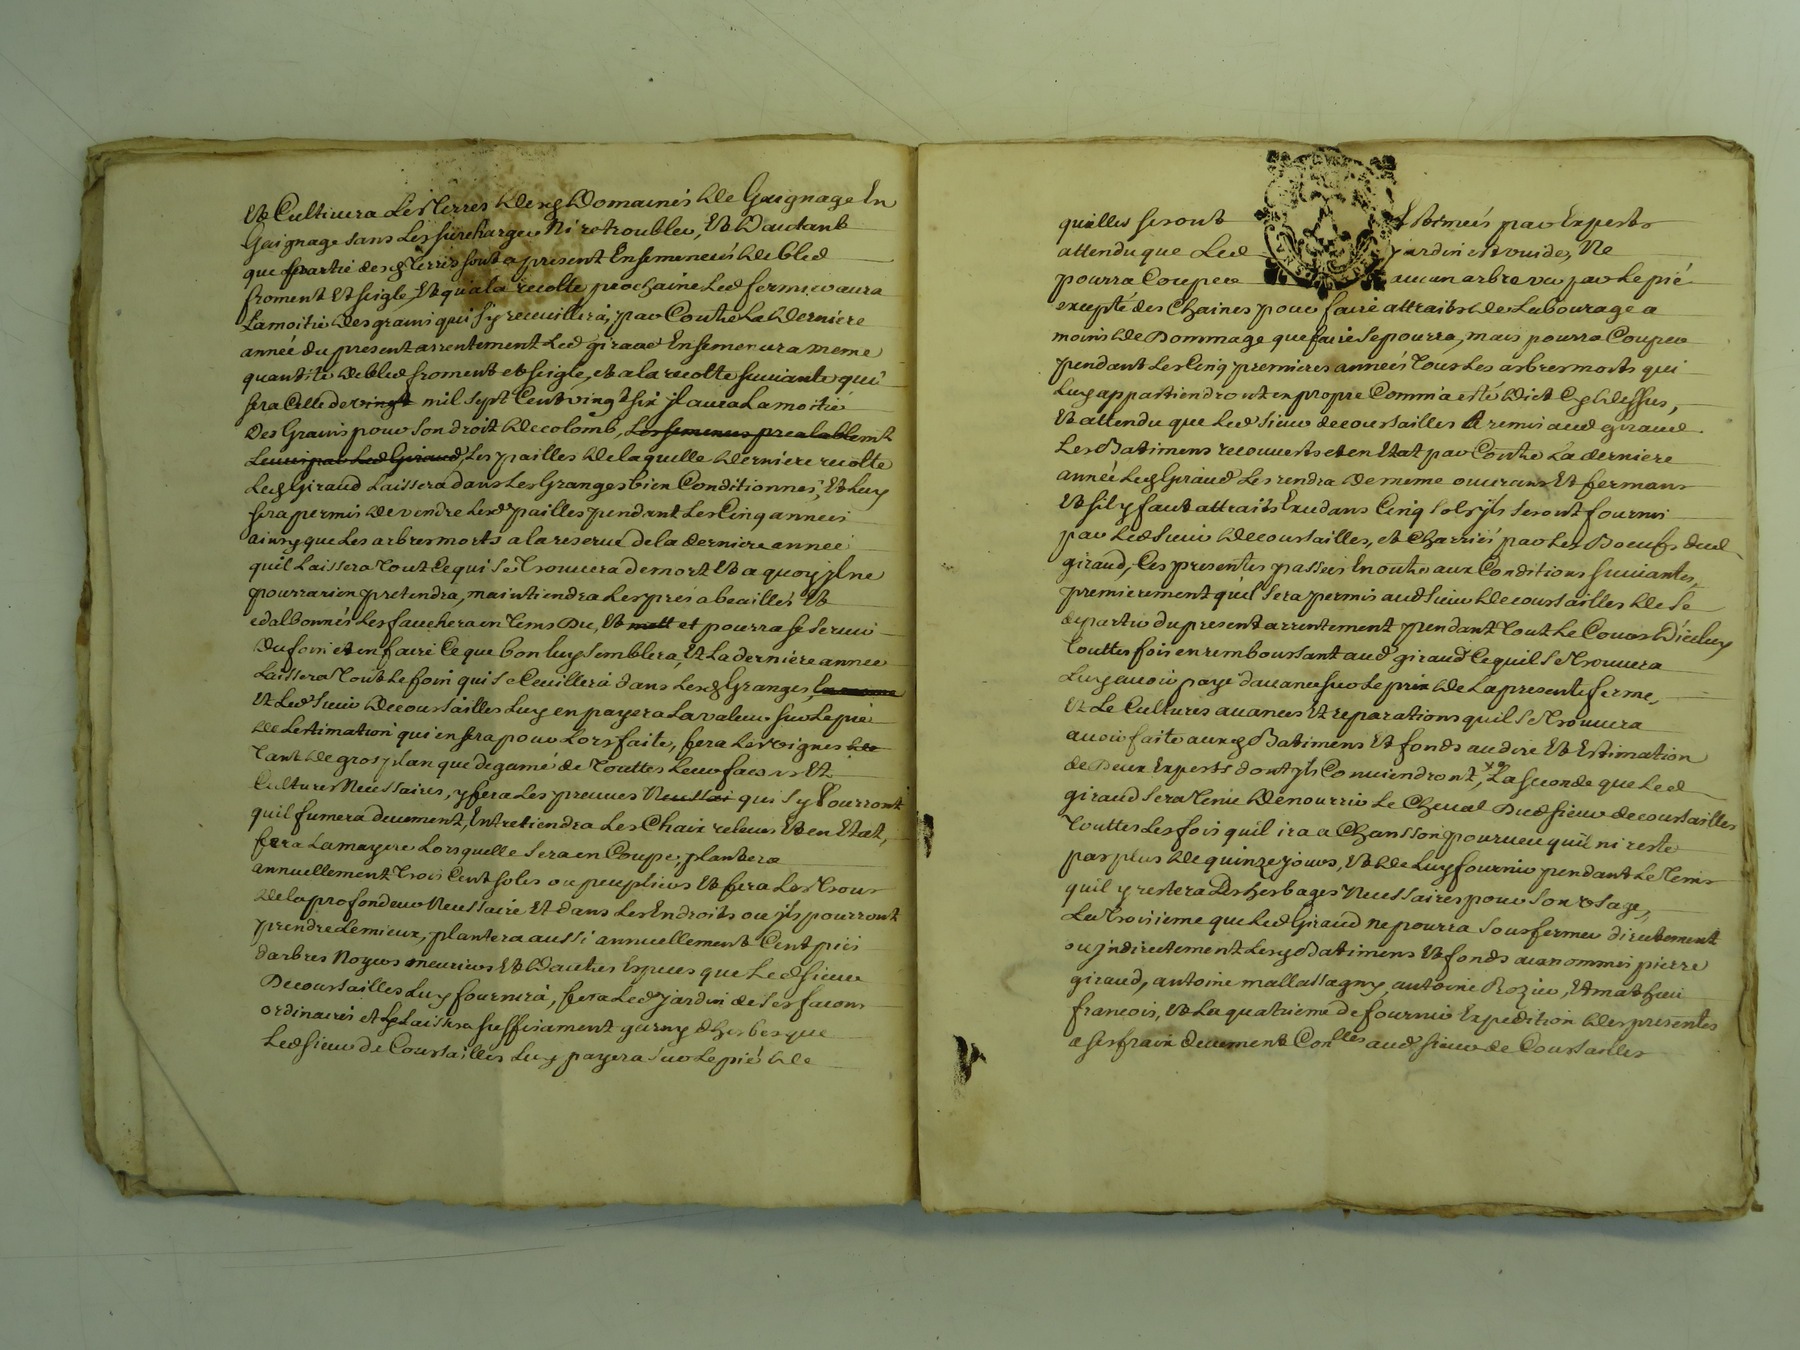 Et Cultivera Les Terres desd Domaines de Gaignage En
Gaignage sans Les surcharger Ni retroubler, Et Dautant
que partie desd Terres sont a present Ensemencés de bled
froment Et seigle, Et qu'a la recolte prochaine Led fermier aura
La moitié des grains qui sy recuillira, par Contre La derniere
année du present arrentement Led giraud Ensemencera meme
quantité de bled froment et seigle, et a la recolte suivante qui
sera Celle de vingt mil sept Cent vingt six jl aura La moitié
Des Grains pour son droit de colomb, Les semences prealablemt
Levées par Led Giraud, Les pailles de laquelle derniere recolte
Led Giraud Laissera dans Les Granges bien Conditionnés, Et Luy
sera permis de vendre Lesd pailles pendant Les Cinq années
ainsy que Les arbres morts a la reserve de la derniere année
quil Laissera Tout Ce qui se Trouvera de mort Et a quoy jl ne
pourra rien pretendre, maintiendra Les prés abeaillés Et
edalbonnés Les fauchera en Tems Du, Et mett et pourra se servir
Du foin et en faire Ce que bon luy semblera, Et La derniere année
Laissera Tout Le foin qui se Ceuillera dans Lesd Granges, la meme
Et Led sieur decoursailles Luy en payera La valeur sur Le pié
de Lestimation qui en sera pour Lors faite, fera Les vignes de
Tant de gros plan que de gamé de Touttes Leur facons Et
Cultures Necessaires, y fera Les preuves Necessai qui sy Pourront
quil fumera deuement, Entretiendra Les Chaix relevés Et en Etat,
fera La mayere Lorsquelle sera en Coupe, plantera
annuellement Trois Cent soles ou peupliers Et fera Les Trous
de la profondeur Necessaire Et dans Les Endroits ou jls pourront
prendre Le mieux, plantera aussi annuellement Cent piés
darbres Noyers meuriers Et Dautres Especes que Led sieur
Decoursailles Luy fournira, fera Led jardin de ses facons
ordinaires et Le Laissera suffisament garny dherbes que
Led sieur de Coursailles Luy payera sur Le pié de
quelles seront Estimés par Experts
attendu que Led jardin est vuide, Ne
pourra Couper aucun arbre par Le pié
excepté des Chaines pour faire attraits de Labourage a
moins de Dommage que faire se pourra, mais pourra Couper
pendant Les Cinq premieres années Tous Les arbres morts qui
Luy appartiendront en propre Comm'a esté dict Cy dessus,
Et attendu que Led sieur decoursailles A remis aud giraud
Les Batimens recouverts et en Etat par Contre La derniere
année Led Giraud Les rendra de meme ouvrans Et fermans
Et sil y faut attraits Exedans Cinq sols jls seront fournis
par Led sieur decoursailles, et Charriés par Les Boeufs dud
giraud, Ces presentes passées En outre aux Conditions suivantes,
premierement qu'il sera permis aud sieur decoursailles de se
departir du present arrentement pendant Tout Le Cours Dicelluy
Touttes fois en remboursant aud giraud Ce quil se Trouvera
Luy avoir payé davance sur Le prix de La presente ferme,
Et Le Cultures avances Et reparations quil se Trouvera
avoir faite auxd Batimens Et fonds au dire Et Estimation
de Deux Experts dont jls Conviendront, La seconde que Led
giraud sera Tenu de nourrir Le Cheval Dud sieur decoursailles
Touttes Les fois quil ira a Chansson pourveu quil ni reste
pas plus de quinze jours, Et de Luy fournir pendant Le Tems
quil y restera Les herbages Necessaires pour son Usage,
La Troisieme que Led Giraud ne pourra sousfermer directement
ou jndirectement Lesd Batimens Et fonds aux nommés pierre
giraud, antoine mallassagny antoine Rozier, Et mathieu
francois, Et La quatrieme de fournir Expedition des presentes
a ses frais deuement Conlles aud sieur de Coursailles